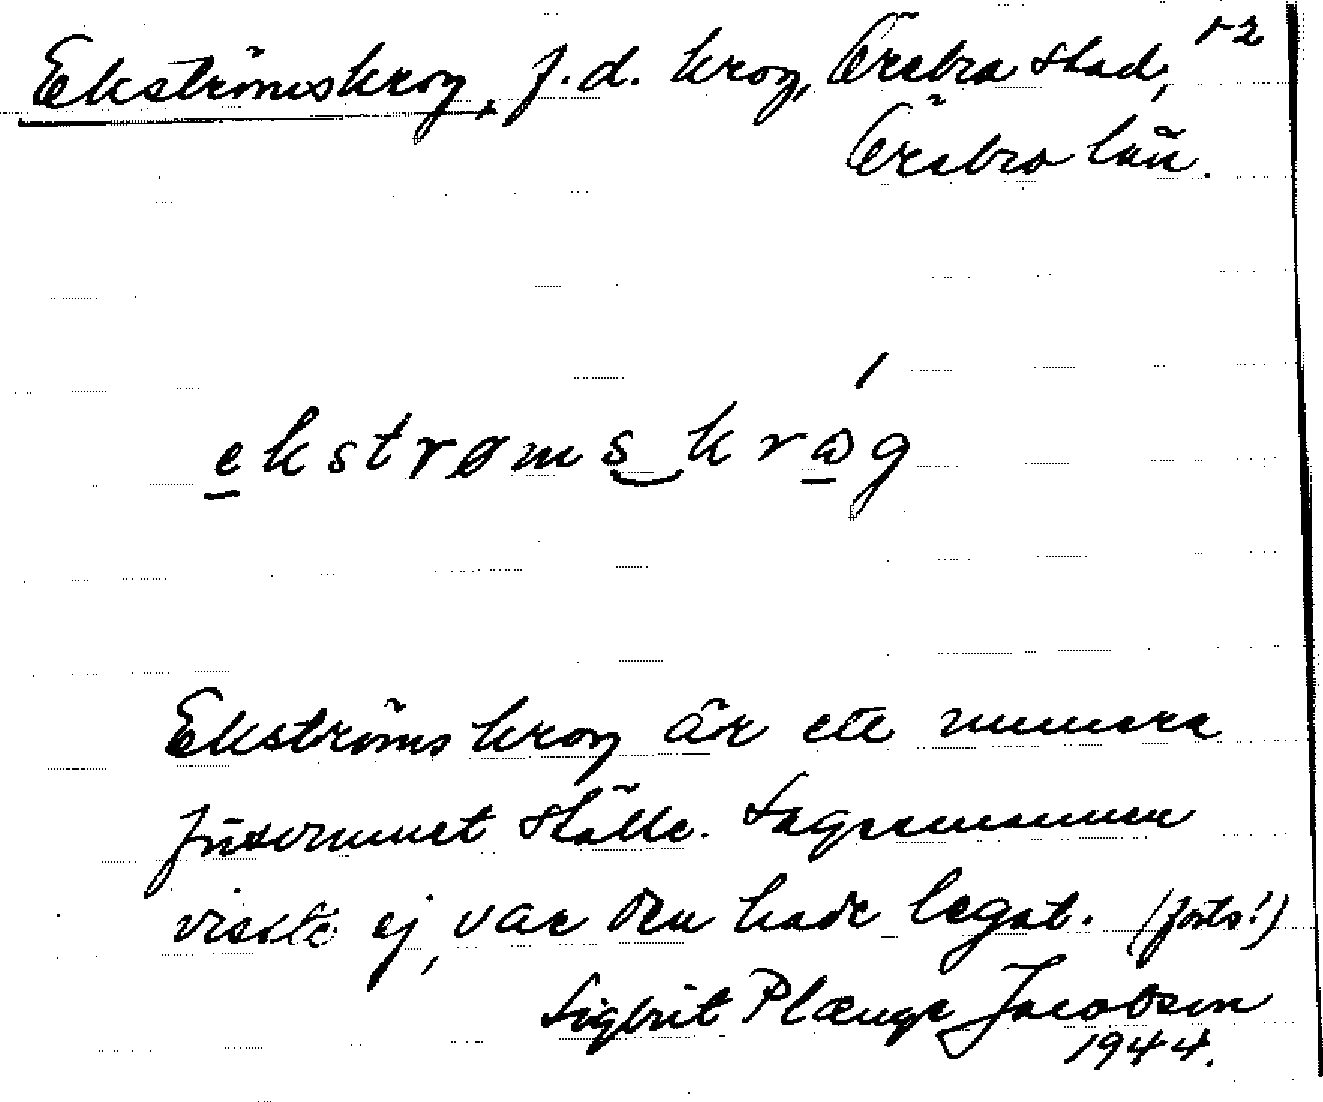 Ekströmskrog, f.d. krog, Örebro stad, 1-2
Örebro län.
ekstrømskrωg
Ekströms krog är ett numera
försvunnet ställe. Sagesmannen
visste ej, var den hade legat. (forts!)
Sigbrit Plænge Jacobson
1944.